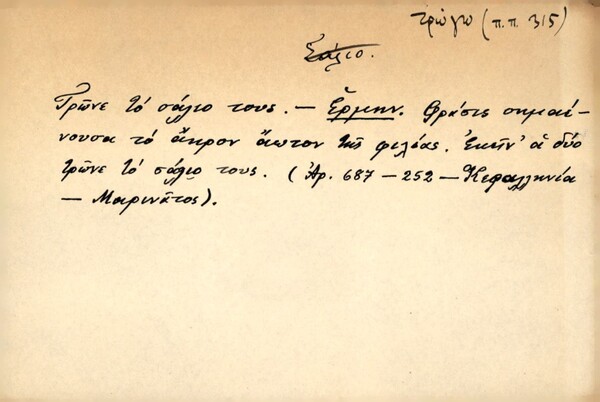 τρώγω (π.π. 315)
Σάλιο.
Τρῶνε τὸ σάλιο τους. — Ἑρμην. Φράσις σημαί-
νουσα τὸ ἄκρον ἄωτον τῆς φιλίας. Ἐκεῖν' οἱ δύο
τρῶνε τὸ σάλιο τους. (Ἀρ. 687 — 252 — Κεφαλληνία
— Μαρινᾶτος).